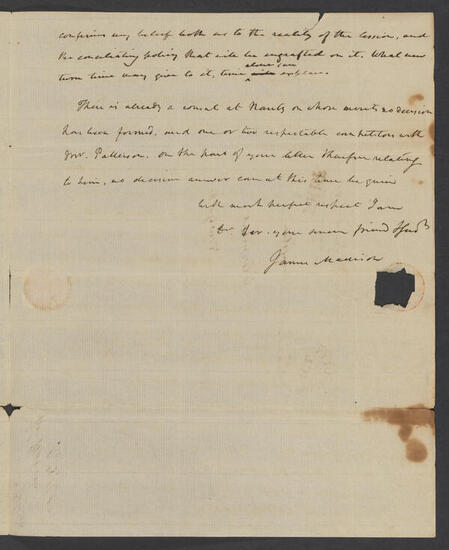 confirms my belief both as to the reality of the cession, and
the conciliating policy that will be engrafted on it. What new
turn time may give to it, time alone can explain.
There is already a consul at Nantz on whose merits no decision
has been formed, and one or two respectable competitors with
Mr. Patterson. On the part of your letter therefore relating
to him, no decisive answer can at this time be given
With most perfect respect I am
Dr Sir your sincere friend &
James Madison